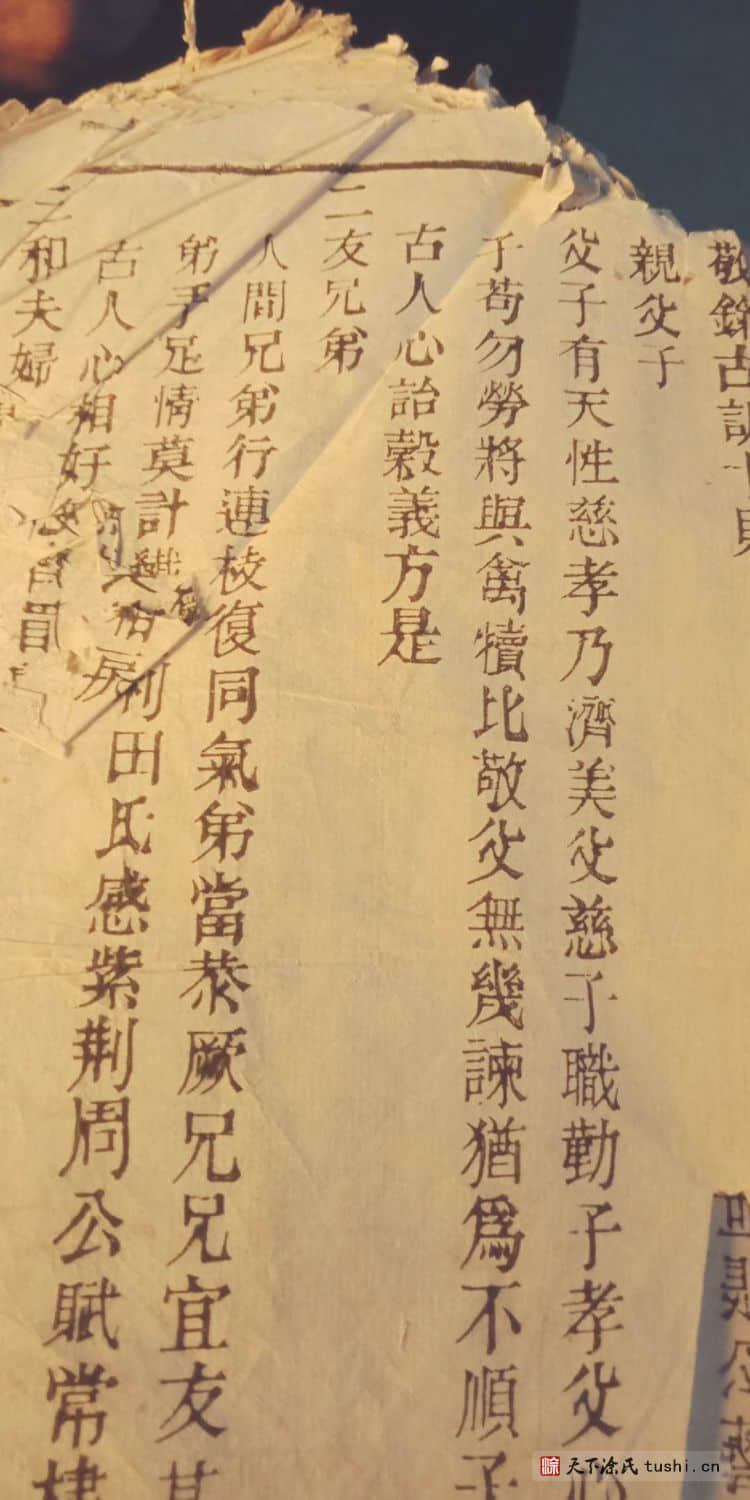 敬錄古訓十則
親父子
父子有天性慈孝乃濟美父慈子職勤子孝父心
子苟勿勞將與禽犢比敬父無幾諫猶爲不順子
古人心詒穀義方是
二友兄弟
人間兄弟行連枝復同氣弟當恭厥兄兄宜友其
弟手足情莫計 利田氏感紫荆周公賦常棣
古人心相好
三和夫婦
天下涂氏 tushi.cn